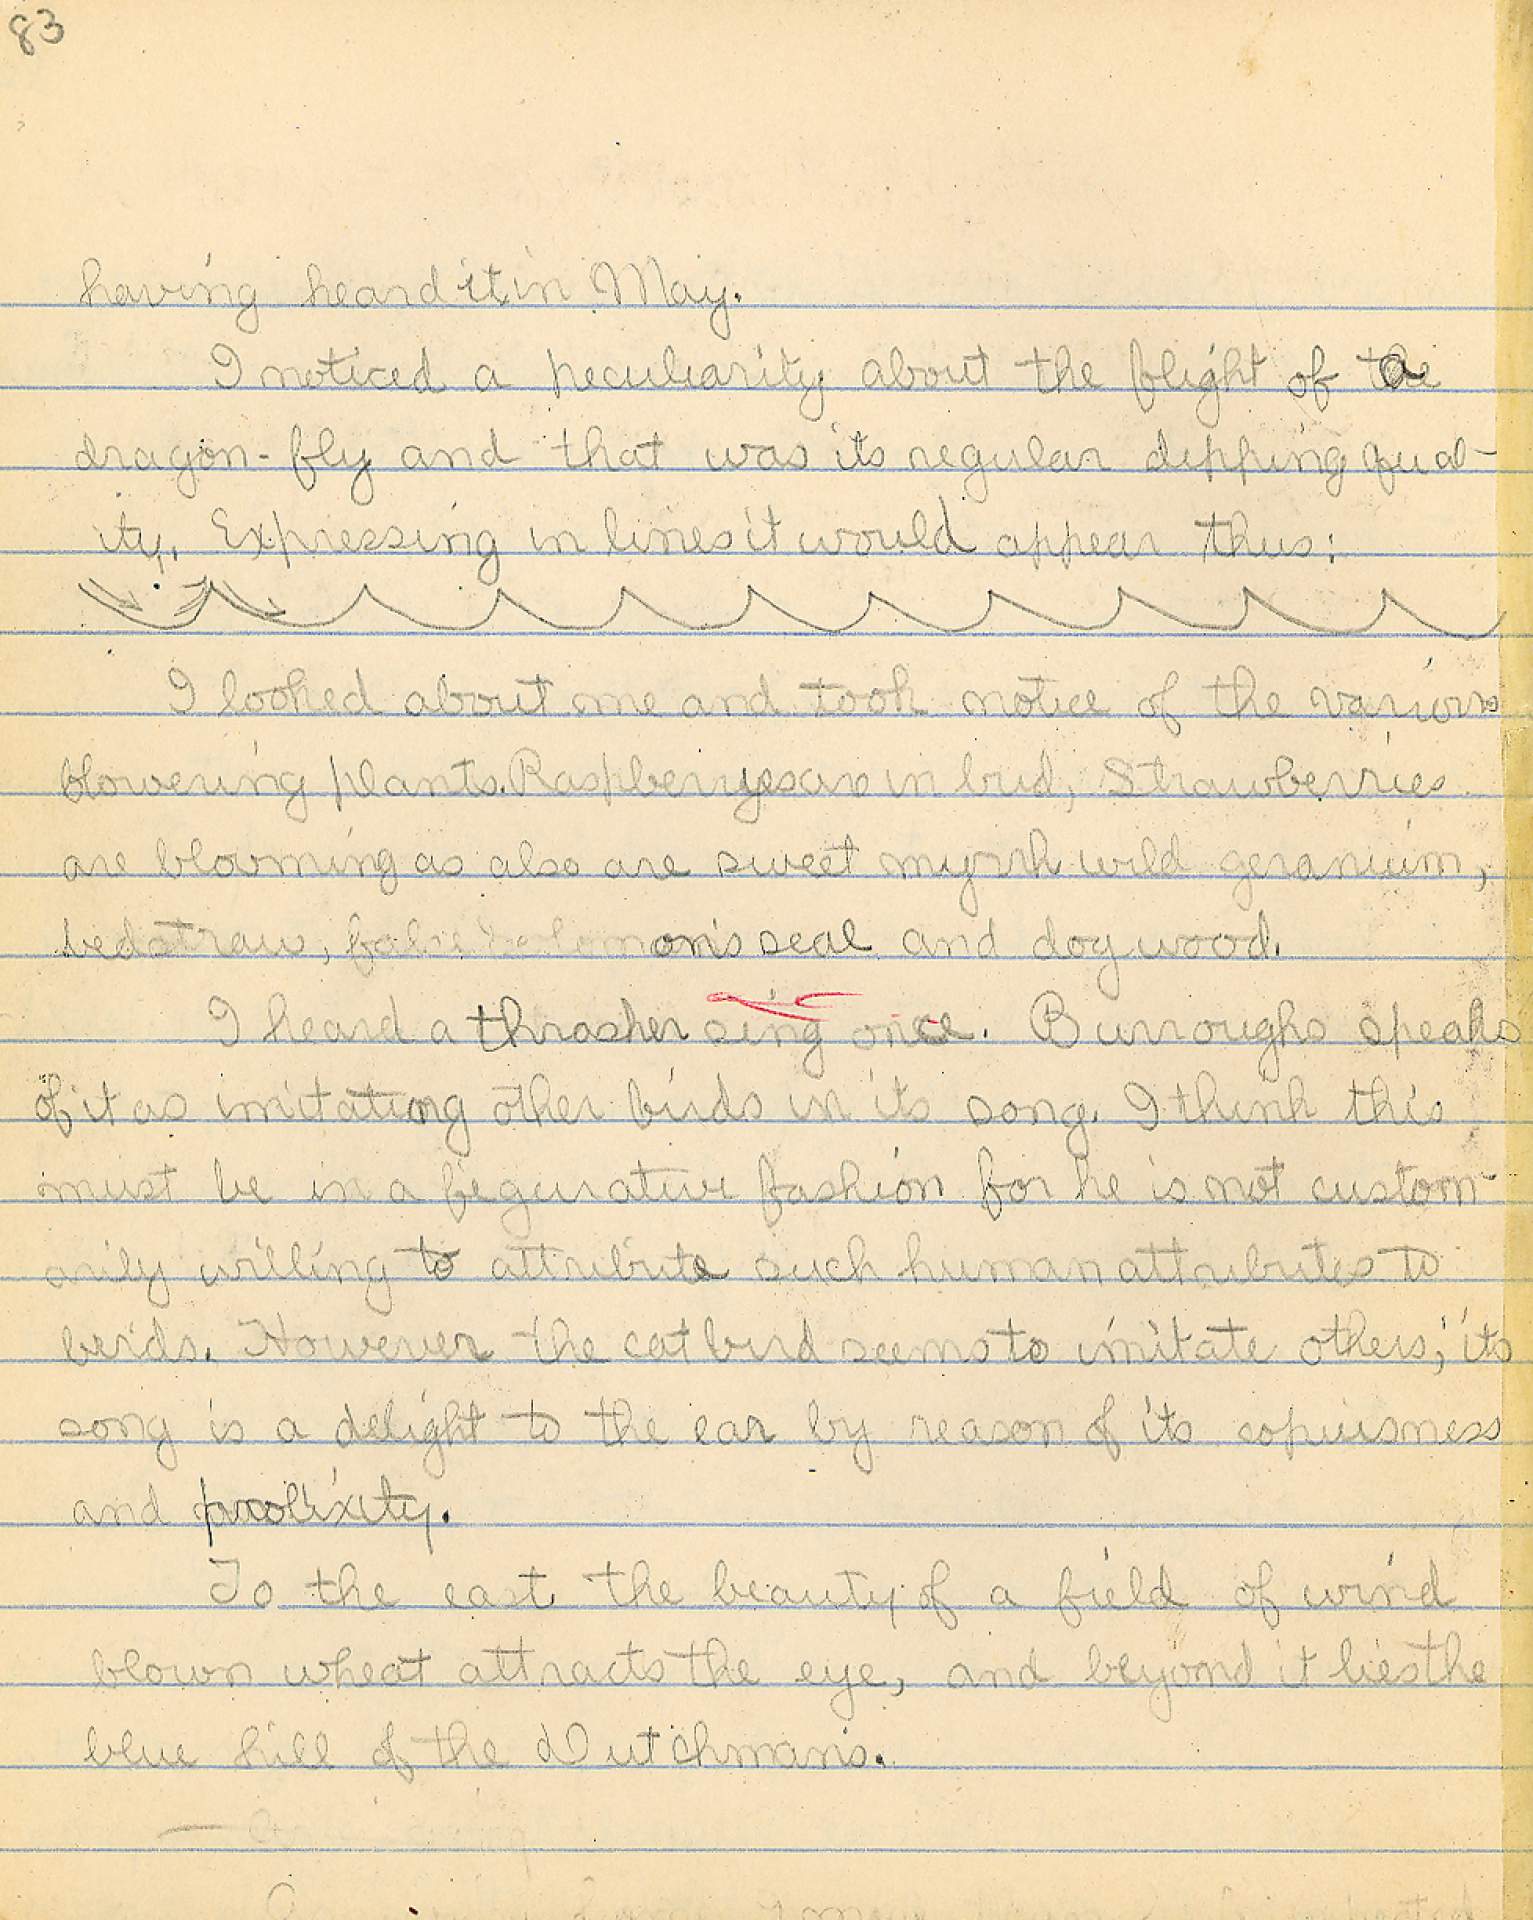 83
having heard it in May.
I noticed a peculiarity about the flight of a
dragon-fly and that was its regular dipping qual-
ity. Expressing in lines it would appear thus:
I looked about me and took notice of the various
flowering plants. Raspberryes are in bud, Strawberries
are blooming as also are sweet myrrh wild geranium,
bedstraw, false Solomon's seal and dogwood.
I heard a thrasher sing once. Burroughs speaks
of it as imitating other birds in its song. I think this
must be in a figurative fashion for he is not custom-
arily willing to attribute such human attributes to
birds. However the catbird seems to imitate others; its
song is a delight to the ear by reason of its copiusness
and prolixity.
To the east the beauty of a field of wind
blown wheat attracts the eye, and beyond it lies the
blue hill of the Dutchmans.